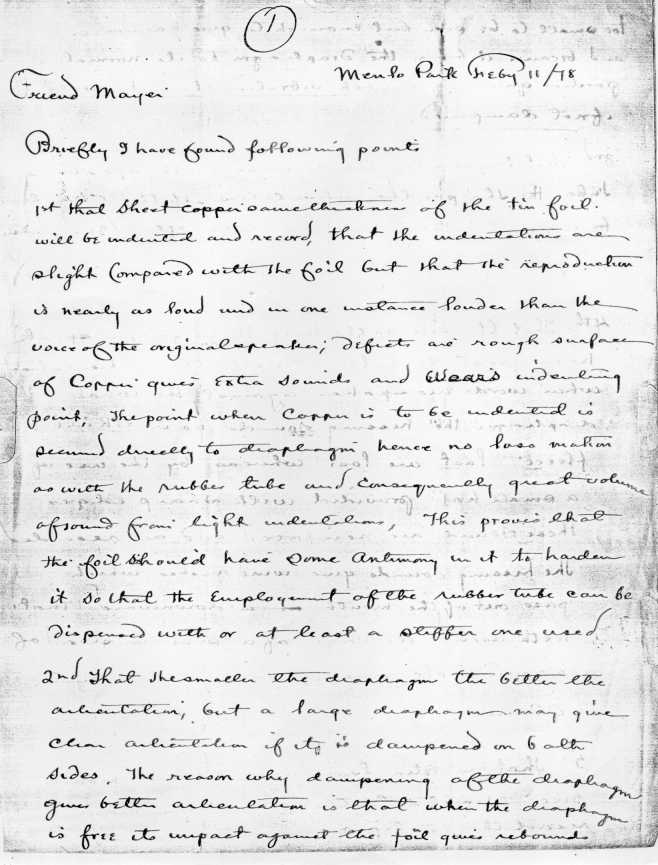 1
Menlo Park Feby 11/78
Friend Mayer
Briefly I have found following points
1st that sheet copper same thickness of the tin foil.
will be indented and record, that the indentations are
slight compared with the foil but that the reproduction
is nearly as loud and in one instance louder than the
voice of the original speaker; defects are rough surface
of Copper gives Extra sounds and wears indenting
point; The point when Copper is to be indented is
secured directly to diaphragm hence no loss motion
as with the rubber tube and consequently great volume
of sound from light indentations, This proves that
the foil should have some Antimony in it to harden
it so that the Employment of the rubber tube can be
dispensed with or at least a stiffer one used
2nd That the smaller the diaphragm the better the
articulation; but a large diaphragm may give
clear articulation if its is dampened on both
sides. The reason why dampening of the diaphragm
gives better articulation is that when the diaphragm
is free its impact against the foil gives rebounds